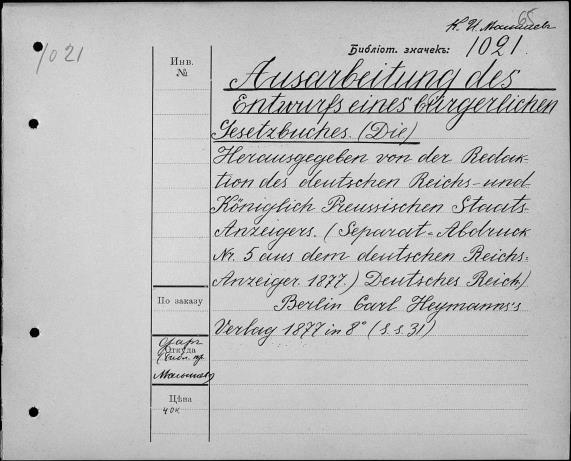 К. И. Малышевъ
65
1021
Библіот. значекъ: 1021.
Инв.
№
Ausarbeitung des
Entwurfs eines bürgerlichen
Gesetzbuches. (Die)
Herausgegeben von der Redak-
tion des deutschen Reichs- und
Königlich Preussischen Staats-
Anzeigers. (Separat-Abdruck
Nr. 5 aus dem deutschen Reichs-
Anzeiger 1877.) Deutsches Reich.)
Berlin Carl Heymanns's
Verlag 1877 in 8° (S. s. 31)
По заказу
Откуда
Малышев
Цѣна
40к